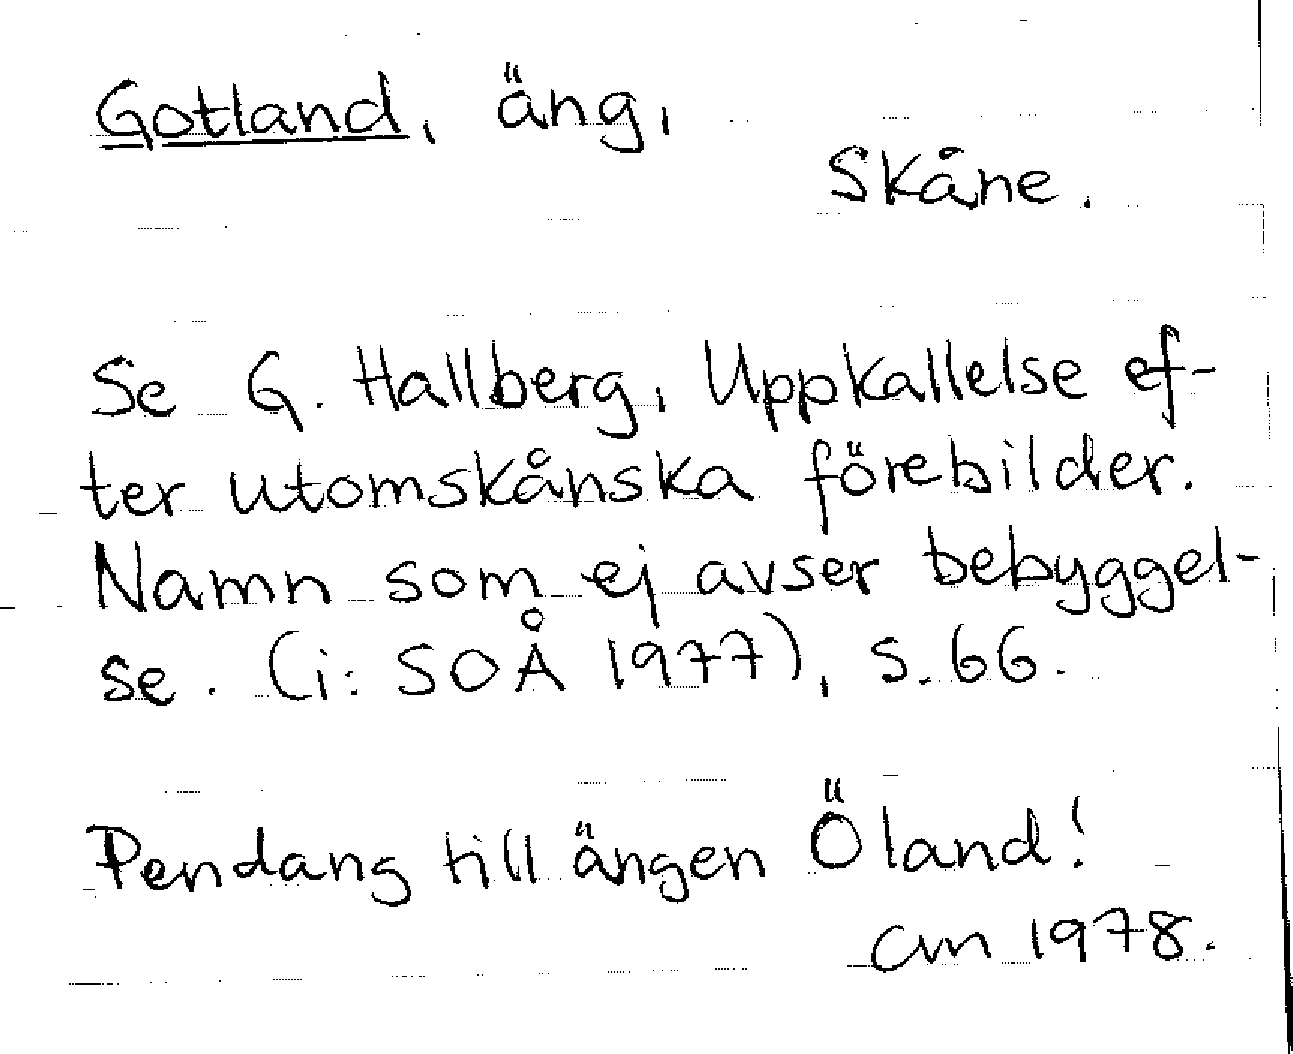 Gotland, äng,
Skåne.
Se G. Hallberg, Uppkallelse ef-
ter utomskånska förebilder.
Namn som ej avser bebyggel-
se. (i: SOÅ 1977), s. 66.
Pendang till ängen Öland!
CM 1978.